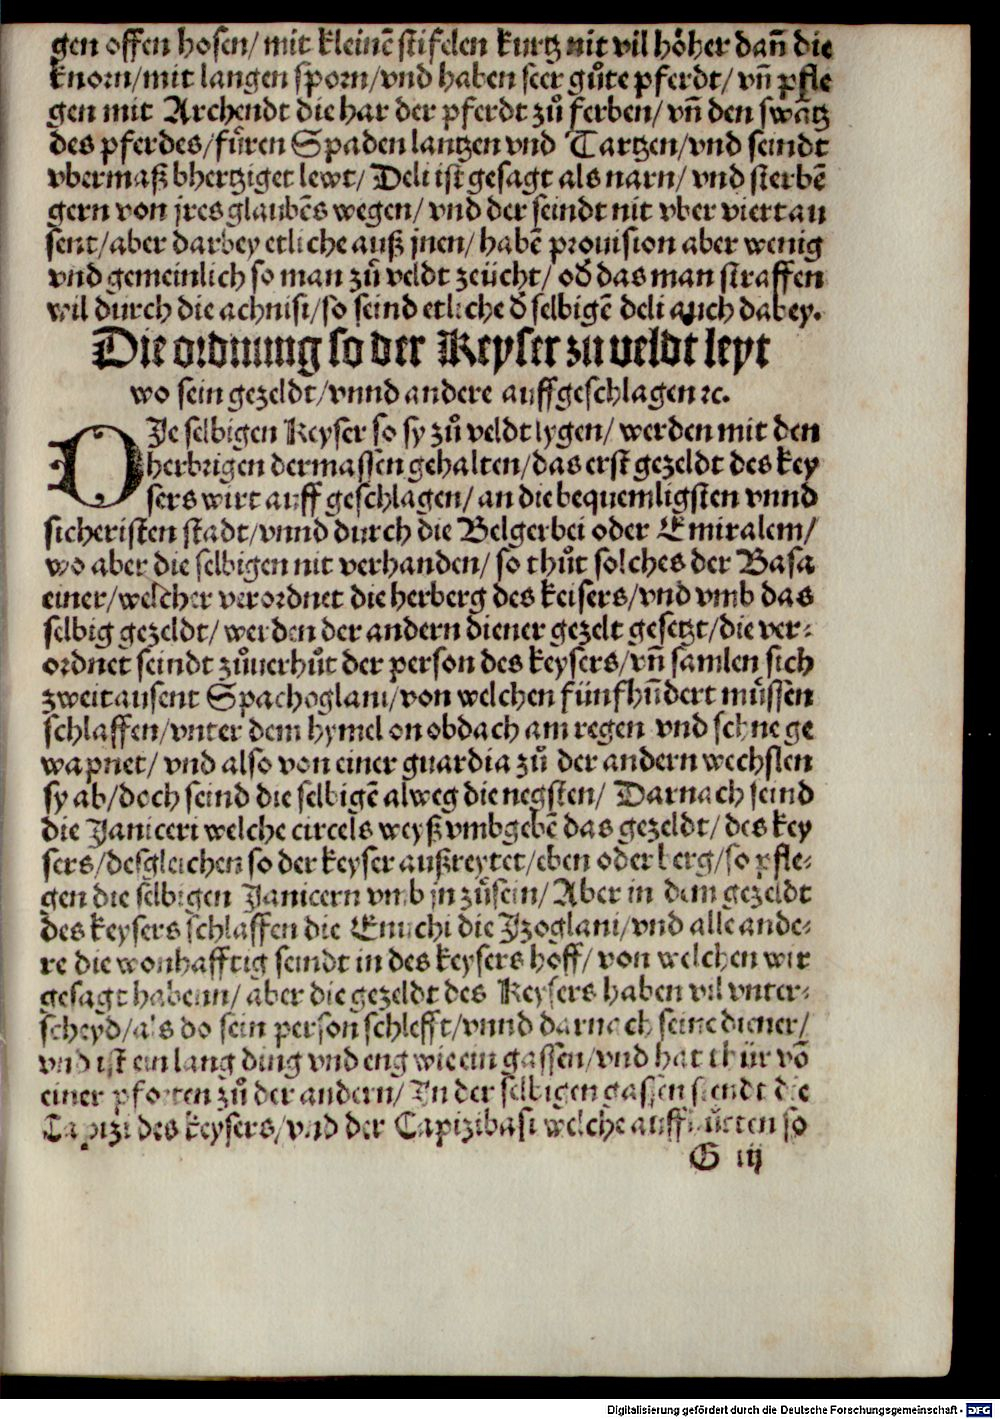 gen offen hosen/ mit kleinē stifelen kurtz nit vil höher dañ die
knorn/mit langen sporn/vnd haben seer gůte pferdt/ vñ pfle
gen mit Archendt die har der pferdt zů ferben/ vñ den swātz
des pferdes/fůren Spaden lantzen vnd Tartzen/vnd seindt
vbermaß bhertziget lewt/ Deli ist gesagt als narn/ vnd sterbē
gern von jres glaubēs wegen/ vnd der seindt nit vber viertau
sent/aber darbey etliche auß jnen/ habē prouision aber wenig
vnd gemeinlich so man zů veldt zeücht/ od̄ das man straffen
wil durch die achnisi/so seind etliche d̄ selbigē deli auch dabey.
Die ordnung so der Keyser zu veldt leyt
wo sein gezeldt/vnnd andere auffgeschlagen ⁊c.
DIe selbigen Keyser so sy zů veldt lygen/ werden mit den
herbrigen dermassen gehalten/das erst gezeldt des key
sers wirt auff geschlagen/ an die bequemligsten vnnd
sicheristen stadt/vnnd durch die Belgerbei oder Emiralem/
wo aber die selbigen nit verhanden/ so thůt solches der Basa
einer/welcher verordnet die herberg des keisers/vnd vmb das
selbig gezeldt/ werden der andern diener gezelt gesetzt/die ver⸗
ordnet seindt zůuerhůt der person des keysers/vñ samlen sich
zweitausent Spachoglani/von welchen fünfhūdert můssen
schlaffen/vnter dem hymel on obdach am regen vnd schne ge
wapnet/ vnd also von einer guardia zů der andern wechslen
sy ab/doch seind die selbigē alweg die negsten/ Darnach seind
die Janiceri welche circels weyß vmbgebē das gezeldt/ des key
sers/desgleichen so der keyser außreytet/eben oder berg/so pfle⸗
gen die selbigen Janicern vmb jn zůsein/ Aber in dem gezeldt
des keysers schlaffen die Enuchi die Jzoglani/vnd alle ande⸗
re die wonhafftig seindt in des keysers hoff/ von welchen wir
gesagt habenn/ aber die gezeldt des Keysers haben vil vnter⸗
scheyd/als do sein person schlefft/vnnd darnach seine diener/
vnd ist ein lang ding vnd eng wie ein gassen/vnd hat thür vō
einer pforten zů der andern/ In der selbigen gassen seindt die
Capizi des keysers/vnd der Capizibasi welche so
G iij
Digitalisierung gefördert durch die Deutsche Forschungsgemeinschaft - DFG